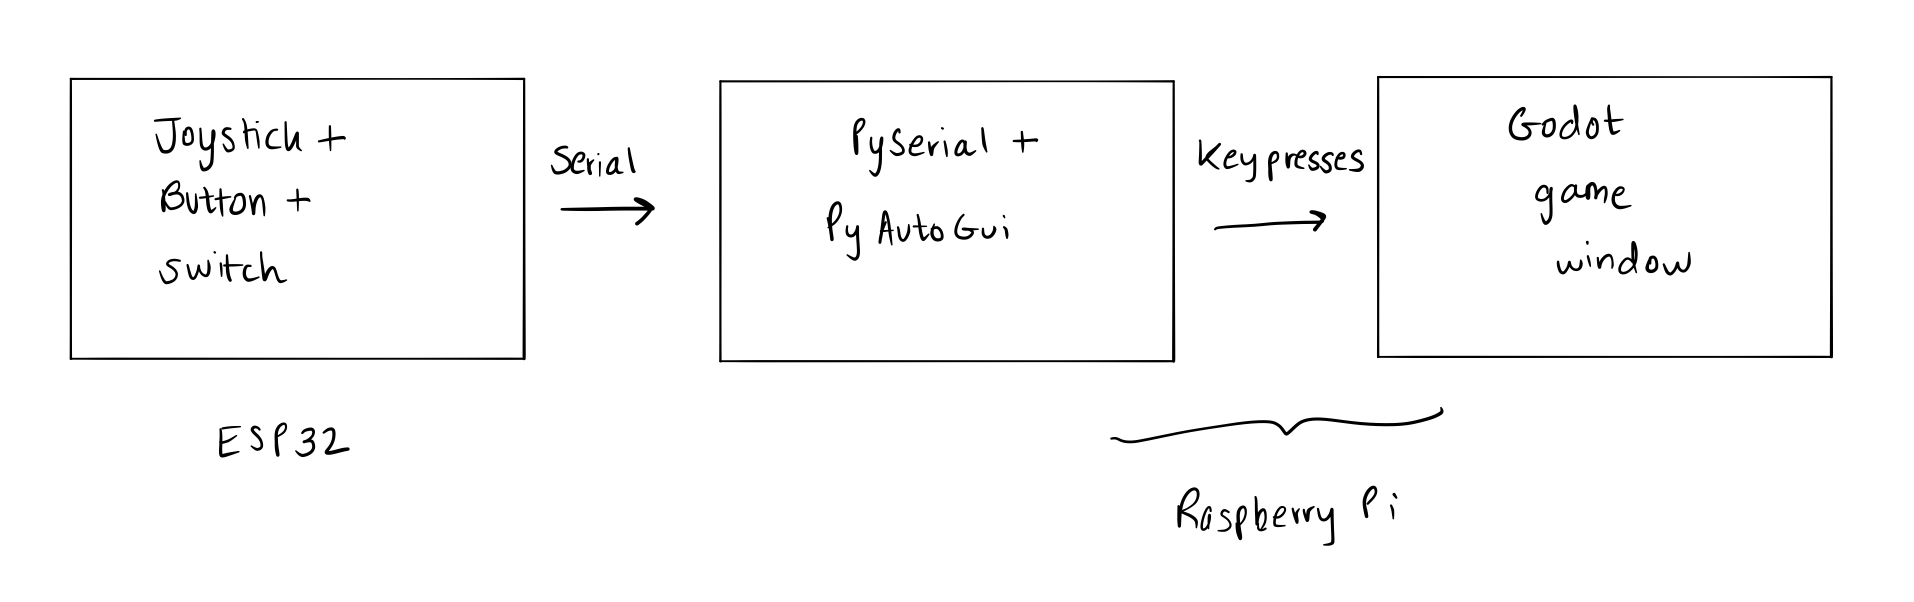 Joystick +
Button +
switch
ESP32
Serial
PySerial +
Py Auto Gui
Keypresses
Godot
game
window
Raspberry Pi